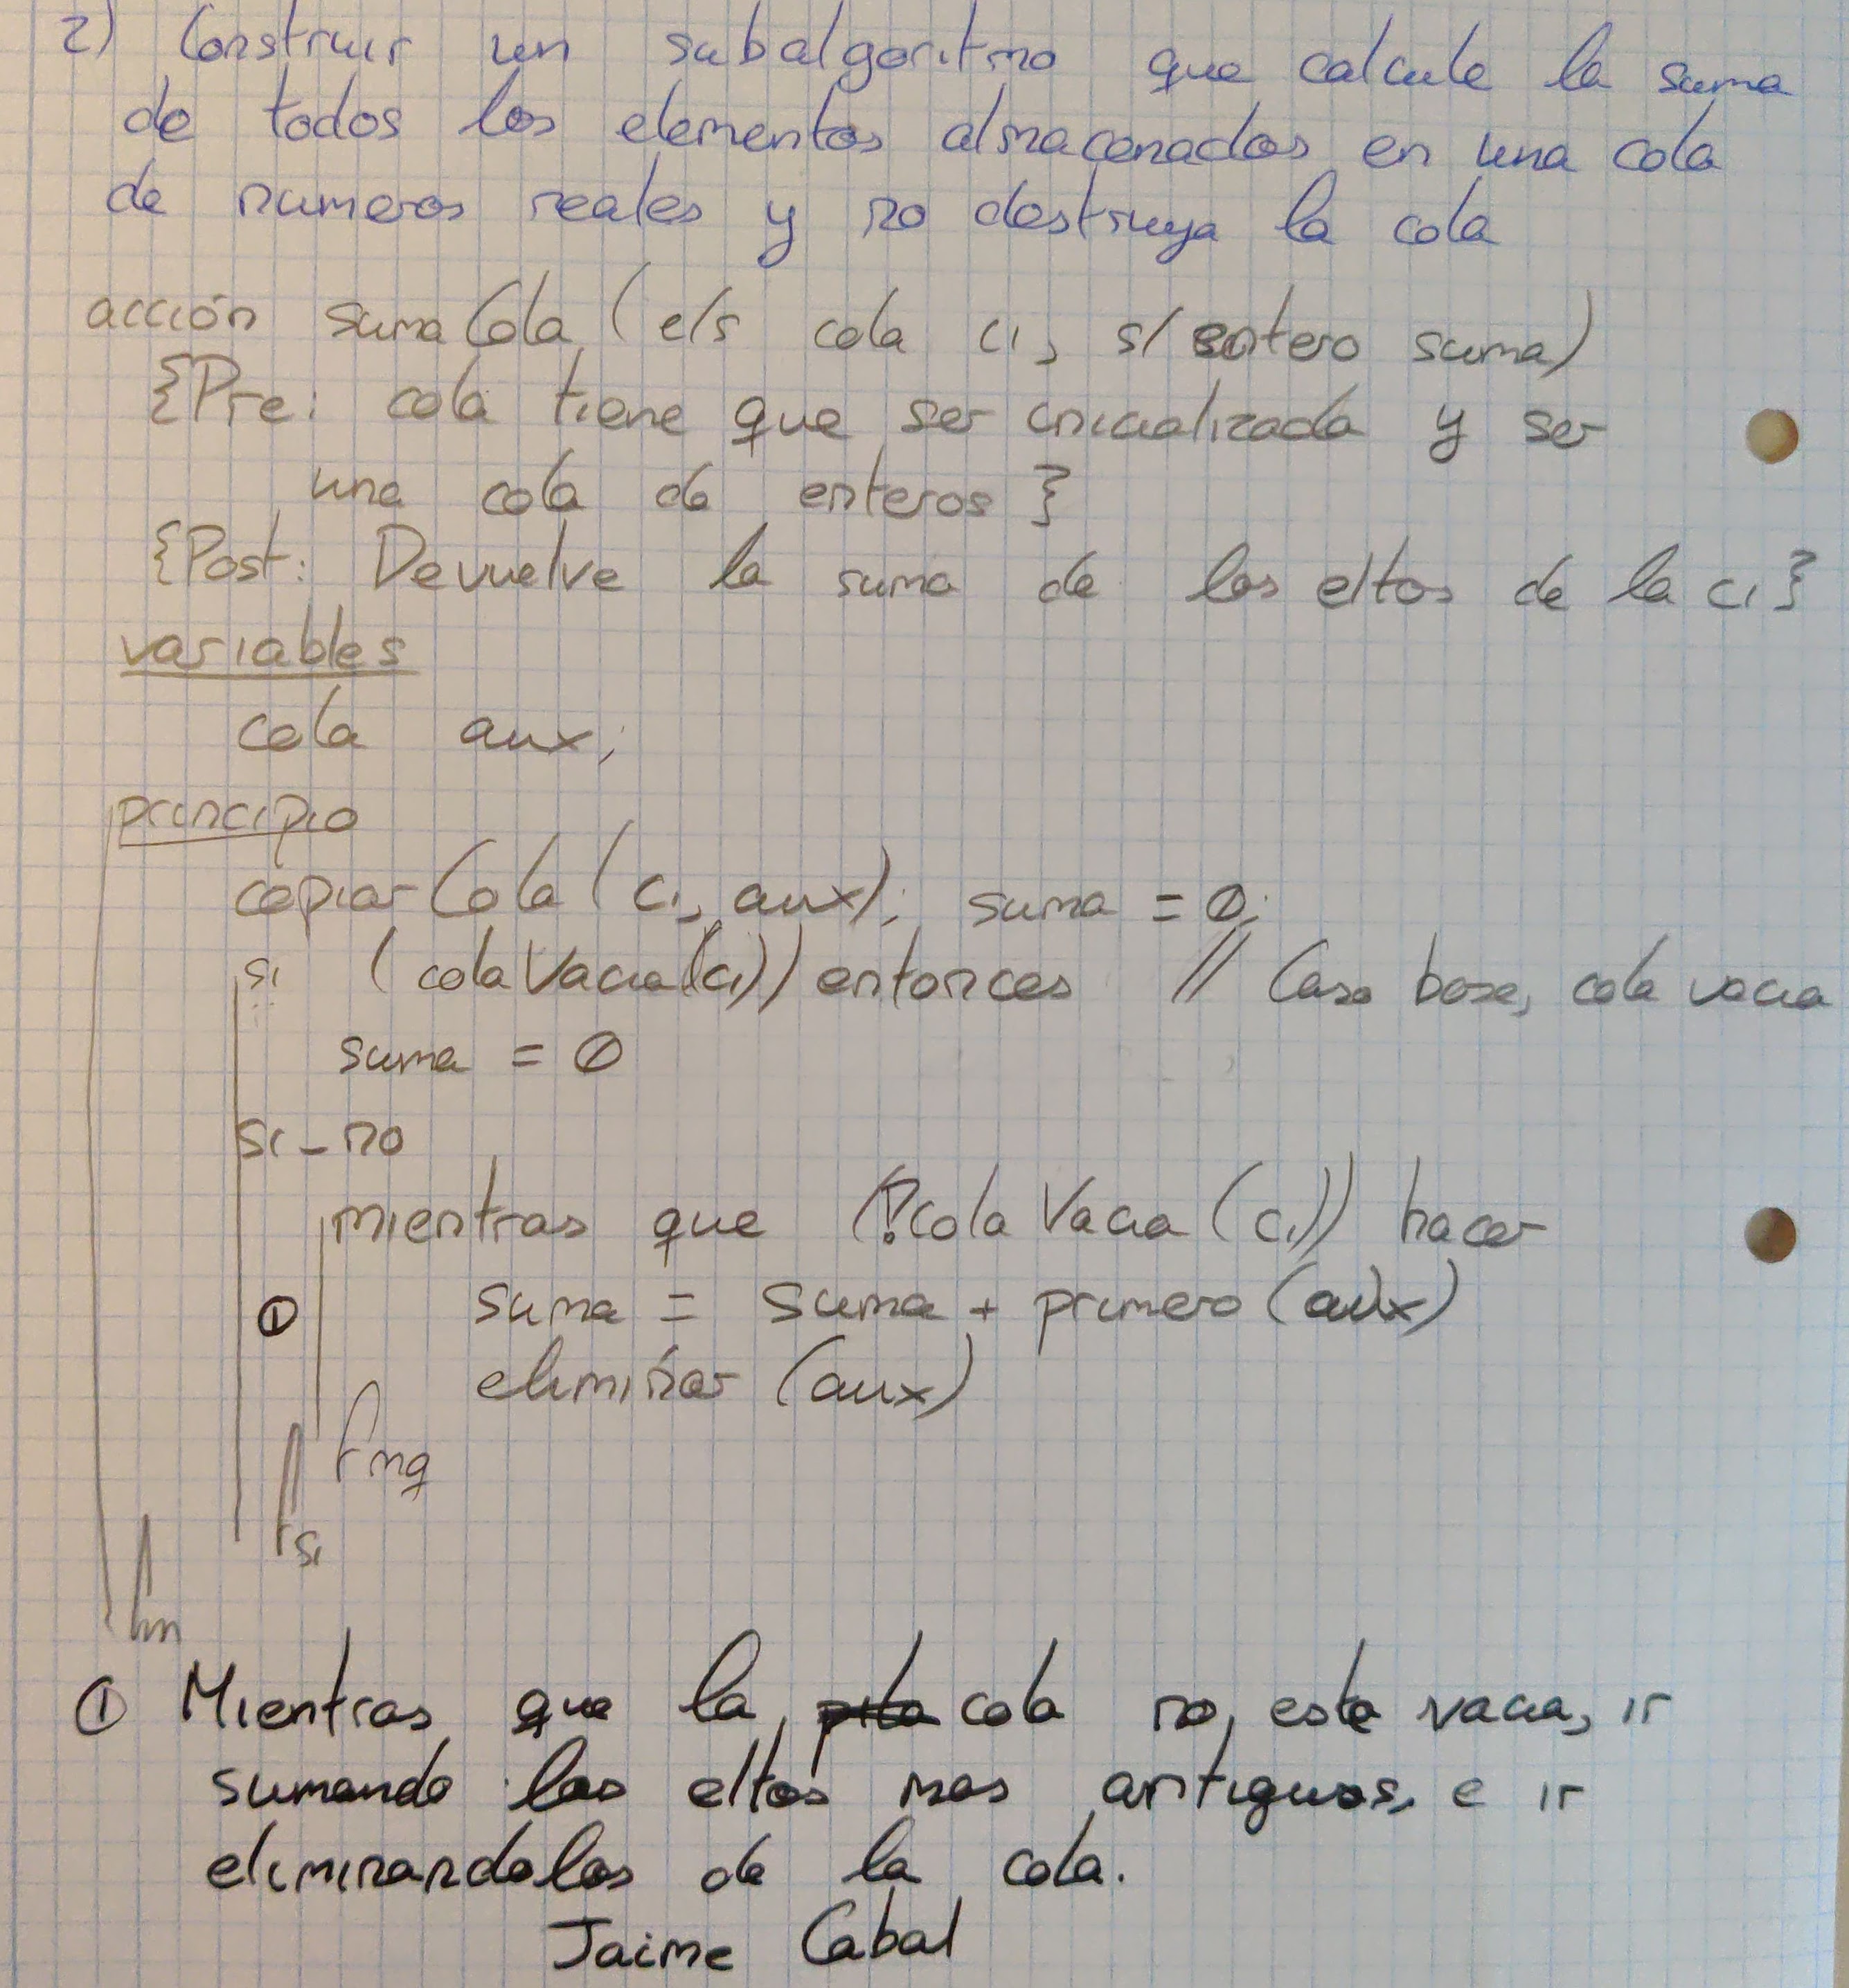 2) Construir un subalgoritmo que calcule la suma
de todos los elementos almacenados en una cola
de numeros reales y no destruya la cola
acción sumaCola (e/s cola c1, s/ entero suma)
{Pre: cola tiene que ser inicializada y ser
una cola de enteros }
{Post: Devuelve la suma de los eltos de la c1}
variables
cola aux;
principio
copiarCola (c1, aux); suma = 0;
si (colaVacia(c1)) entonces // Caso base, cola vacia
suma = 0
si-no
mientras que (!colaVacia(c1)) hacer
① suma = suma + primero (aux)
eliminar (aux)
fmq
fsi
fin
① Mientras que la pila cola no este vacia, ir
sumando los eltos mas antiguos, e ir
eliminandolos de la cola.
Jaime Cabal